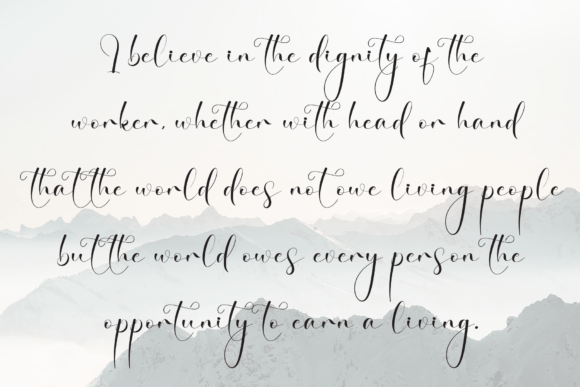 I believe in the dignity of the
worker, whether with head or hand
that the world does not owe living people
but the world owes every person the
opportunity to earn a living.